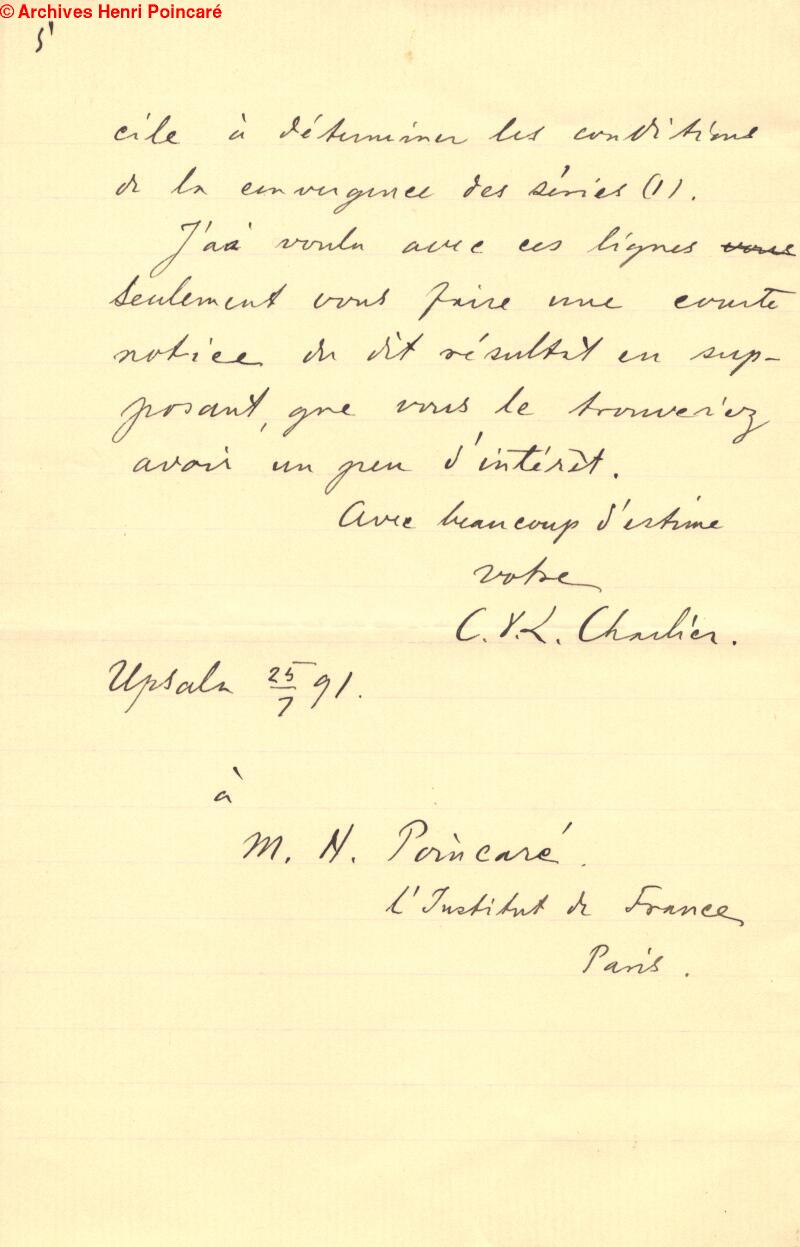 © Archives Henri Poincaré
5
cile à déterminer les conditions
de la convergence des séries (1).
J'ai voulu avec ces lignes vous
seulement vous faire une courte
notice du dit résultat en sup-
posant, que vous le trouveriez
avoir un peu d'intérêt.
Avec beaucoup d'estime
votre
C. V. L. Charlier.
Upsala 25/7 91.
à
M. H. Poincaré.
l'Institut de France
Paris.